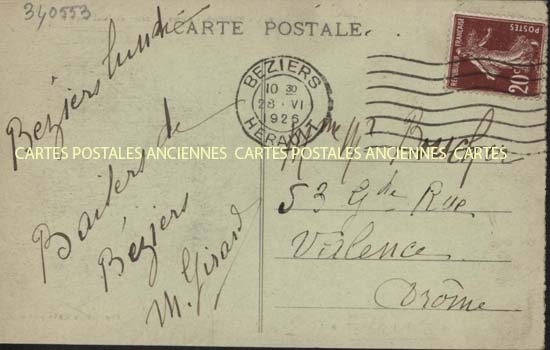 340553
CARTE POSTALE.
Béziers lundi
Baisers de
Béziers
M. Girard
BEZIERS
10 30
28 · VI
1926
HERAULT
REPUBLIQUE FRANÇAISE
POSTES
20c
CARTES POSTALES ANCIENNES CARTES POSTALES ANCIENNES CARTES
53 Gde Rue
Valence
Drôme